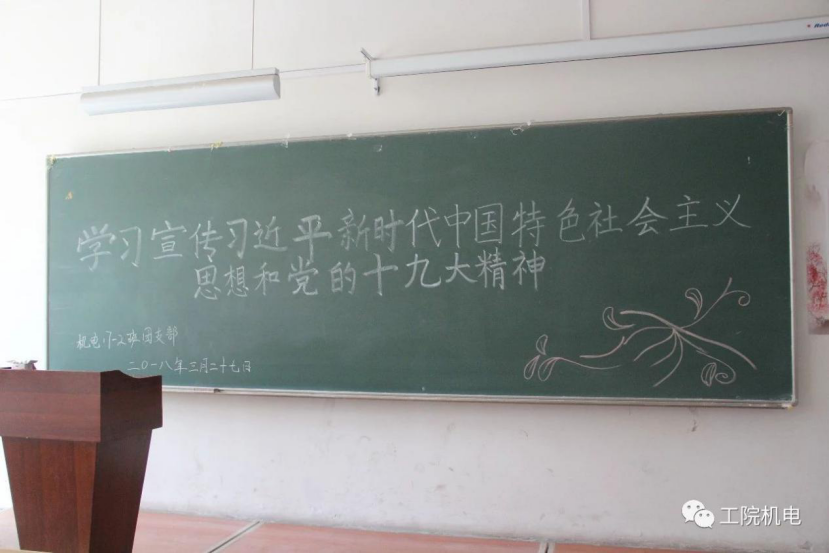 学习宣传习近平新时代中国特色社会主义
思想和党的十九大精神
机电17-2班团支部
二〇一八年三月二十九日
工院机电